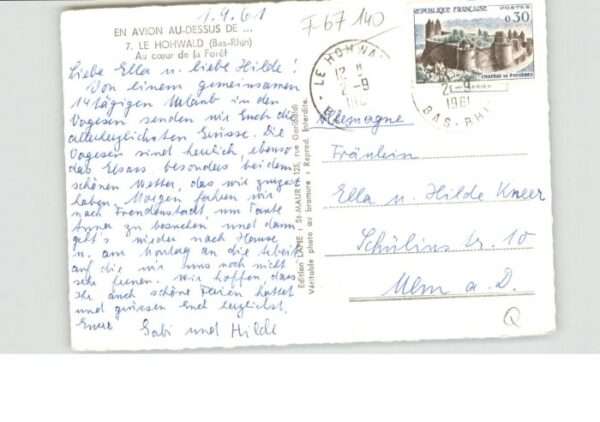 1.9.61
F67 140
EN AVION AU-DESSUS DE ...
7. LE HOHWALD (Bas-Rhin)
Au cœur de la Forêt
Liebe Ella u. liebe Hilde!
Von einem gemeinsamen
14tägigen Urlaub in den
Vogesen senden wir Euch die
allerherzlichsten Grüsse. Die
Vogesen sind herrlich, ebenso
das Elsass besonders bei dem
schönen Wetter, das wir
haben. Morgen fahren wir
nach Freudenstadt, um Tante
Anna zu besuchen und dann
geht's wieder nach Hause
u. am Montag an die Arbeit
auf die wir uns noch nicht
sehr freuen. Wir hoffen, dass
Ihr auch schöne Ferien hattet
und grüssen Euch herzlichst,
Eure Gabi und Hilde
Edition LAPIE : St-MAUR 125, rue Garibaldi
Véritable photo au bromure : Reprod. Interdite.
REPUBLIQUE FRANÇAISE POSTES
0,30
CHATEAU DE FOUGERES
LE HOHWALD
2-9
1961
BAS-RHIN
Allemagne
Fräulein
Ella u. Hilde Kneer
Schülinstr. 10
Ulm a. D.
Q